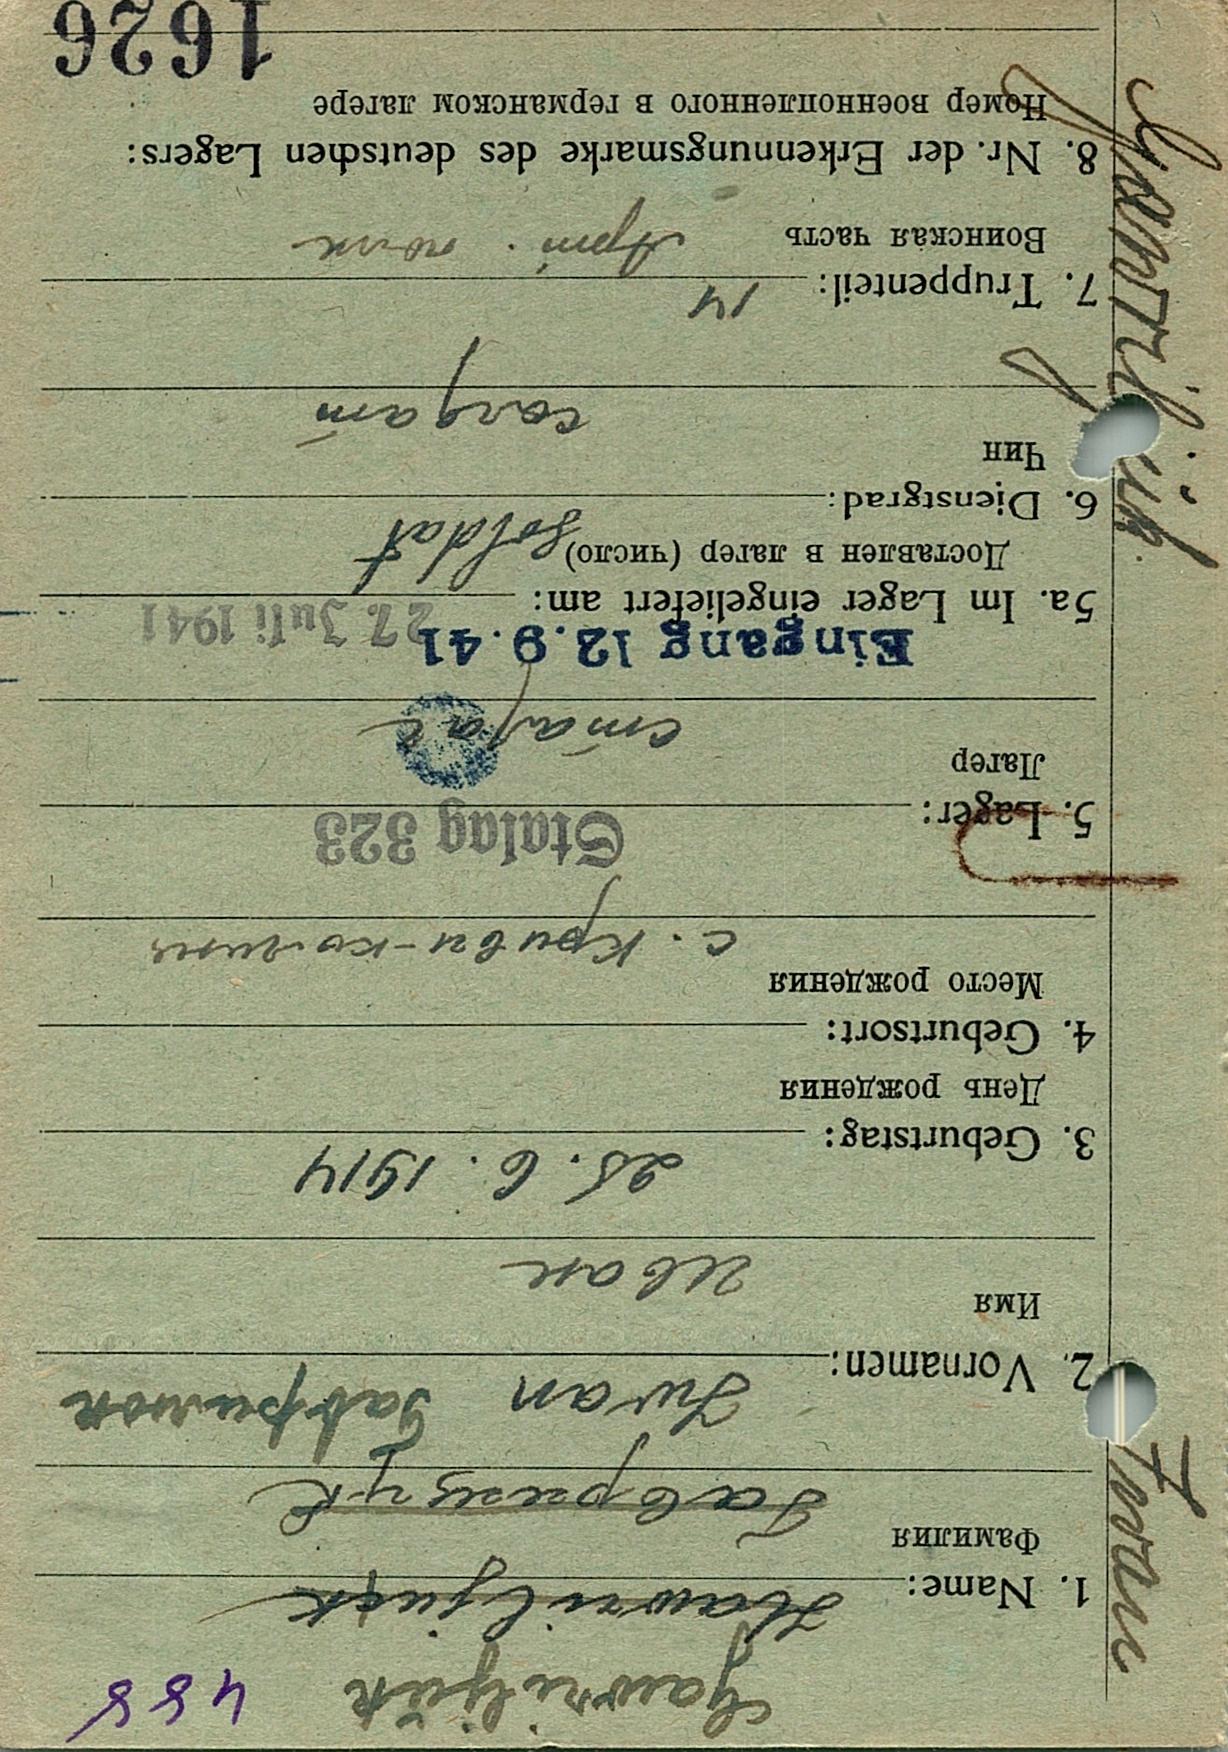 488
Gawriljuk
1. Name: Hawriljuk
Фамилия
Гаврилук
2. Vornamen: Iwan Гаврилюк
Имя
Иван
3. Geburtstag: 25. 6. 1914
День рождения
4. Geburtsort:
Место рождения
с. Криви-колини
Stalag 323
5. Lager:
Лагер
сталаг
Eingang 12.9.41
27. Juli 1941
5a. Im Lager eingeliefert am:
Доставлен в лагер (число)
Soldat
6. Dienstgrad:
Чин
солдат
7. Truppenteil: 14
Воинская часть Арт. полк
8. Nr. der Erkennungsmarke des deutschen Lagers:
Номер военнопленного в германском лагере
1626
Iwan